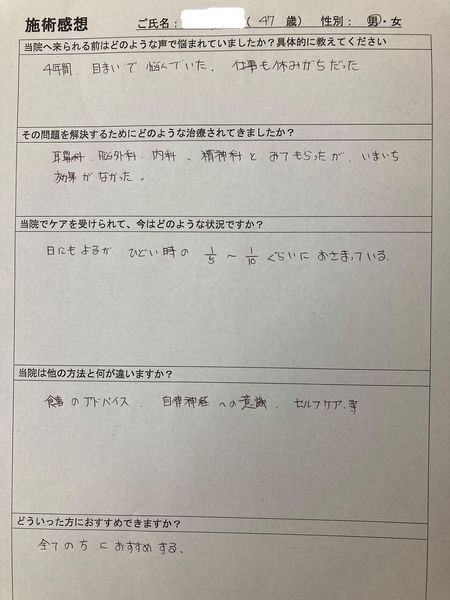 施術感想 ご氏名: ( 47 歳) 性別: 男・女
当院へ来られる前はどのような声で悩まれていましたか?具体的に教えてください
4年間、目まいで悩んでいた。仕事も休みがちだった
その問題を解決するためにどのような治療されてきましたか?
耳鼻科、脳外科、内科、精神科とみてもらったが、いまいち
効果がなかった。
当院でケアを受けられて、今はどのような状況ですか?
日にもよるが ひどい時の 1/5 〜 1/10 ぐらいに おさまっている。
当院は他の方法と何が違いますか?
食事のアドバイス、自律神経への意識、セルフケア、等
どういった方におすすめできますか?
全ての方におすすめする。